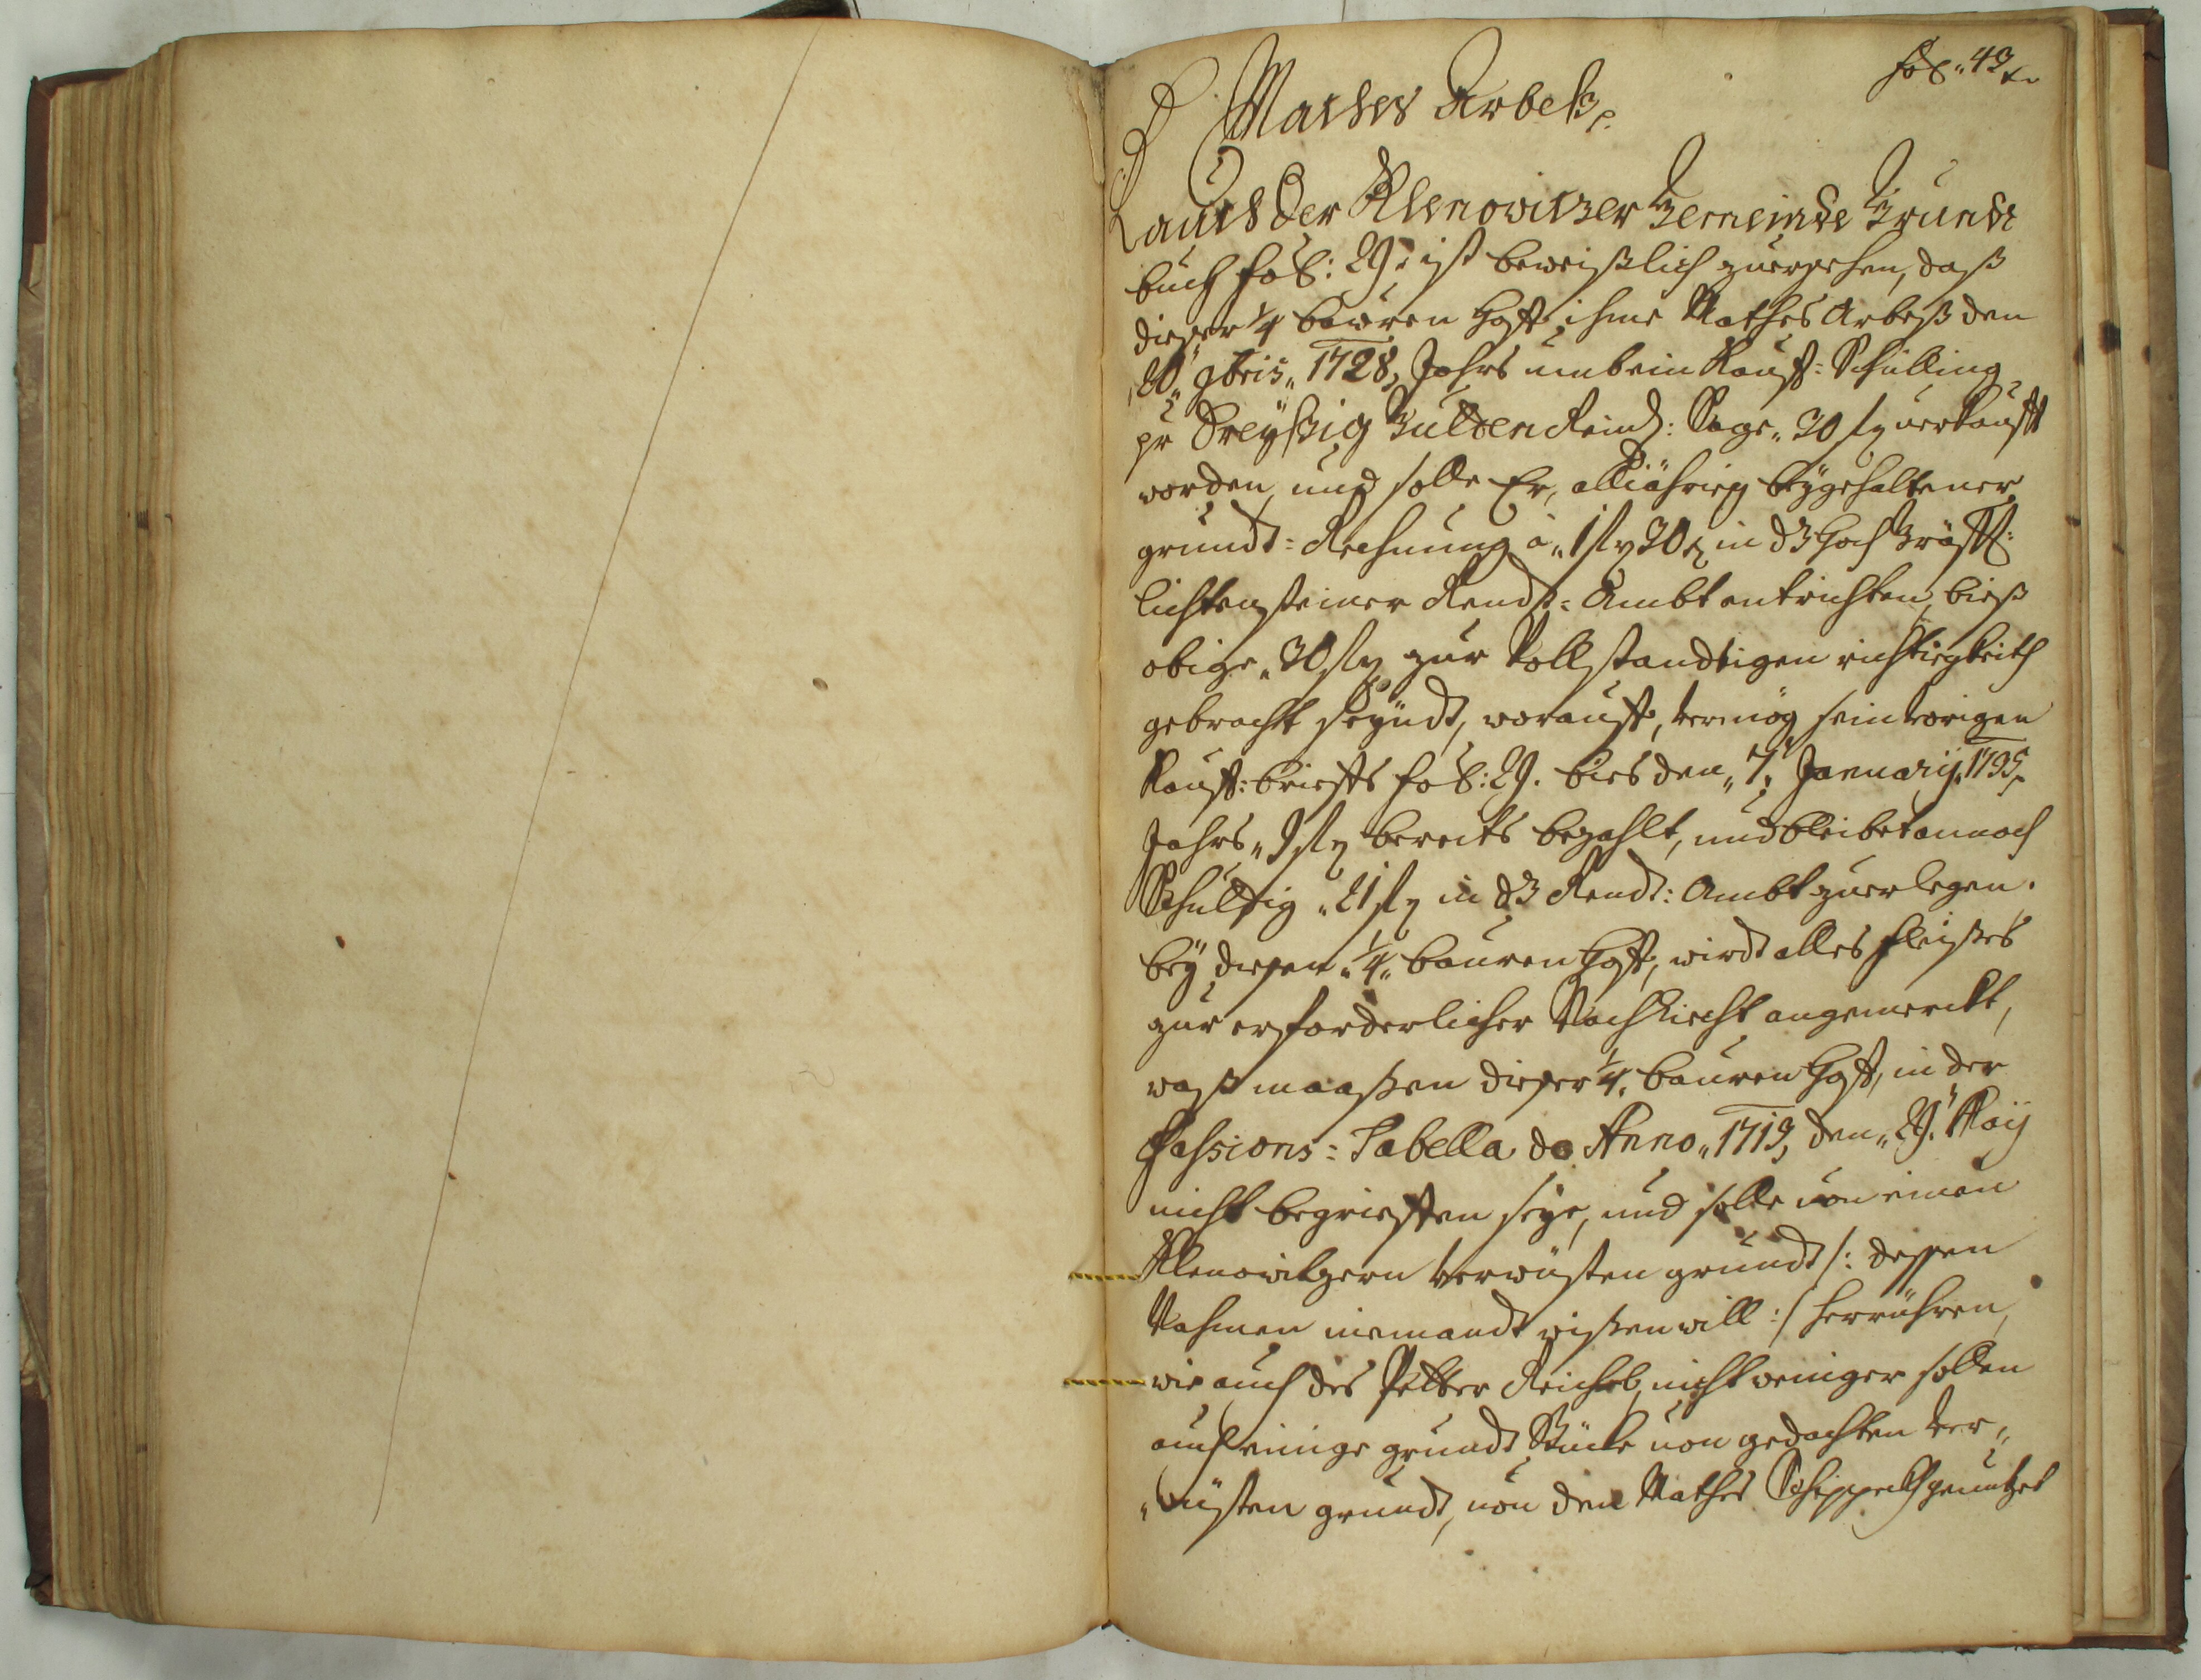 fol. 43
Mathes Arbeß
Lauth der Klenowitzer Gemeinde Grundt
buch fol: 29. ist beweißlich zuersehen, daß
dieser 1/4 bauren Hoff, ihme Mathes Arbeß den
20. 9bris 1728 Jahrs umb ein Kauff-Schilling
pr Dreyßig Gulden Reinis: Sage 30 fl verkaufft
worden, und solle Er, alljährig beygehaltener
grundt-Rechnung à 1 fl 30 x in dz Hoch Gräffl:
lichtensteiner Rendt-Ambt entrichten, bieß
obige 30 fl zur Vollstandtigen richtigkeith
gebracht seyndt, worauff, vermög sein vorigen
Kauff-brieffs fol: 29. bies den 7. Januarij 1735
Jahrs 9 fl bereits bezahlt, und bleibet annoch
Schuldig 21 fl in dz Rendt-Ambt zuerlegen.
bey diesen 1/4 bauren Hoff, wirdt alles fleißes
zur erforderlicher Nachricht angemerckt,
waß maaßen dieser 1/4 bauren Hoff, in der
Fassions-Tabella de Anno 1713, den 29. Maij
nicht begrieffen seye, und solle von einen
Klenowitzern verwüsten grundt /: dessen
Nahmen niemandt wißen will :/ herrühren,
wie auch des Petter Reichel, nicht weniger sollen
auch einige grundt Stücke von gedachten ver-
wüsten grundt, von den Mathes genutzet